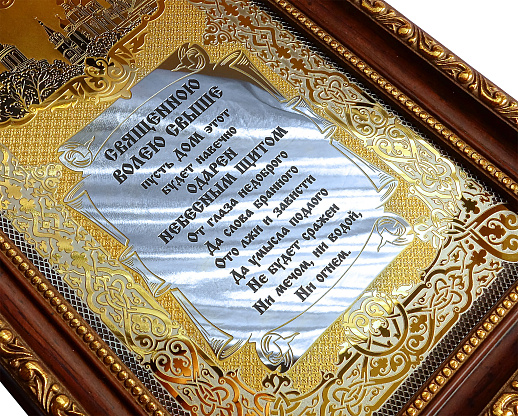 СВЯЩЕННОЮ
ВОЛЕЮ СВЫШЕ
ПУСТЬ ДОМ ЭТОТ
БУДЕТ НАВЕЧНО
ОДАРЕН
НЕБЕСНЫМ ЩИТОМ
От глаза недоброго
Да слова бранного
Ото лжи и зависти
Да умысла подлого
Не будет сражен
Ни мечом, ни водой,
Ни огнем.